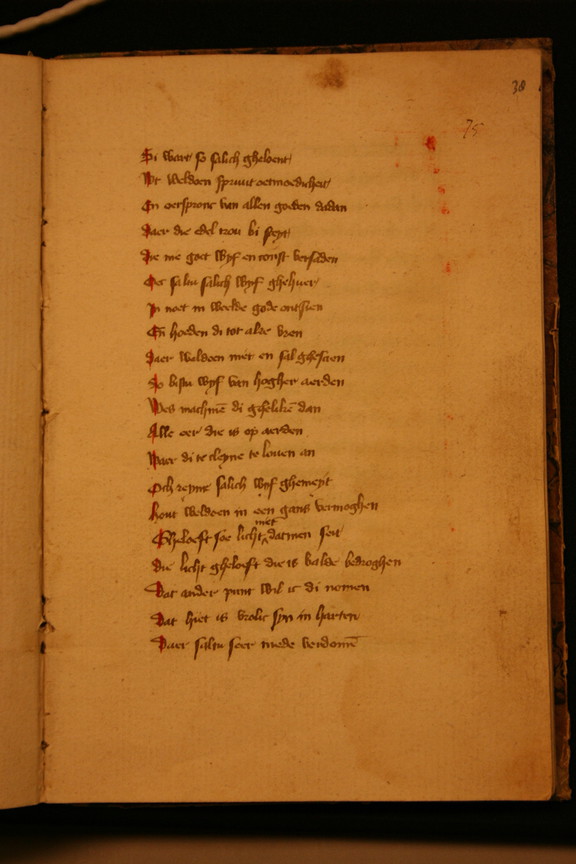 38
75
Si wart so salich gheloent
Wt weldoen spruut oetmoedicheit
En oerspronc van allen goeden daden
Daer die edel trou bi seyt
Die me goet wijf en const versaden
Des saltu salich wijf ghehuer
In noet in weelde gode ontsien
En hoeden di tot alre uren
Daer weldoen met en sal ghescien
So bistu wijf van hogher aerden
Wes machmē di ghelikē dan
Alle eer die is op aerden
Waer di te cleyne te louen an
Och reyne salich wijf ghemeyt
Hout weldoen in een gans vermoghen
Gheloeft soe licht met datmen seit
Die licht gheloeft die is balde bedroghen
Dat ander punt wil ic di nomen
Dat hiet is vrolic syn in harten
Daer saltu seer mede verdomē